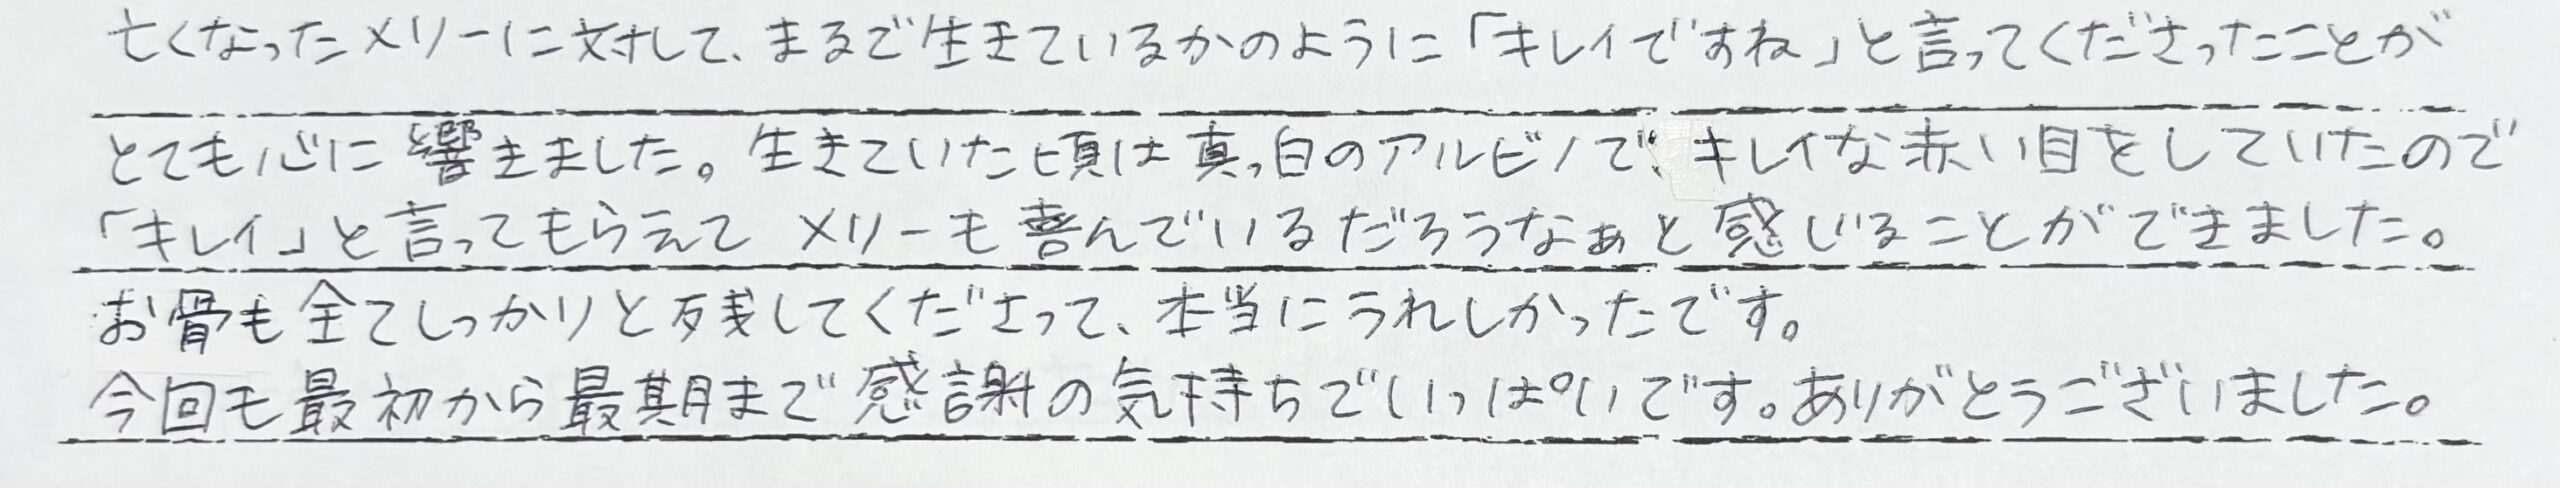 亡くなったメリーに対して、まるで生きているかのように「キレイですね」と言ってくださったことが
とても心に響きました。生きていた頃は真っ白のアルビノで、キレイな赤い目をしていたので
「キレイ」と言ってもらえて メリーも喜んでいるだろうなぁと感じることができました。
お骨も全てしっかりと残してくださって、本当にうれしかったです。
今回も最初から最期まで感謝の気持ちでいっぱいです。ありがとうございました。